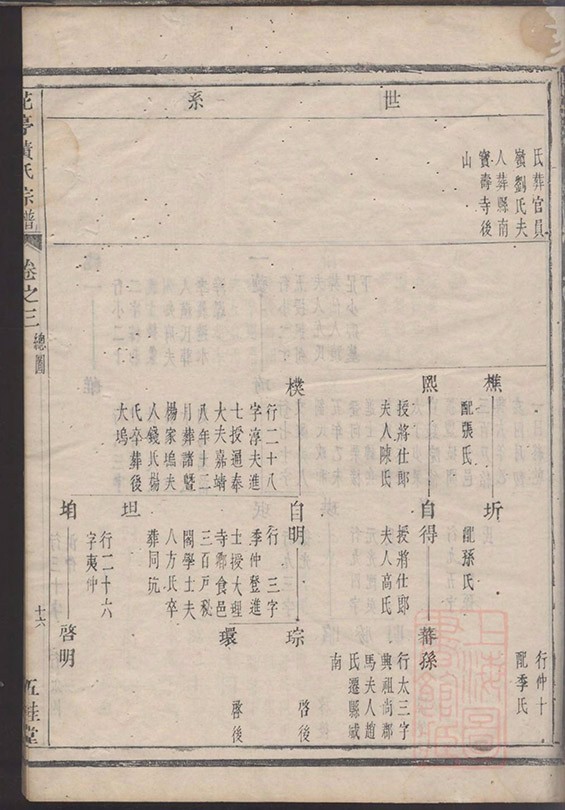 世系
氏葬官員
嶺劉氏夫
人葬縣南
寶壽寺後
山
樵
配張氏
圻
配孫氏
行仲十
配季氏
熙
授將仕郎
夫人陳氏
自得
授將仕郎
夫人高氏
蕃孫
行太三字
興祖尚郡
馬夫人趙
氏遷縣城
南
樸
行二十八
字淳夫進
士授通奉
大夫嘉靖
八年十二
月葬諸暨
楊家塢夫
人錢氏楊
氏卒葬後
大塢
自明
行三字
季仲登進
士授大理
寺卿食邑
三百戶秘
閣學士夫
人方氏卒
葬同坑
琮
啓後
環
啓後
坦
行二十六
字夷仲
垍
啓明
花亭黃氏宗譜
卷之三
總圖
十六
五桂堂
上海圖書館藏